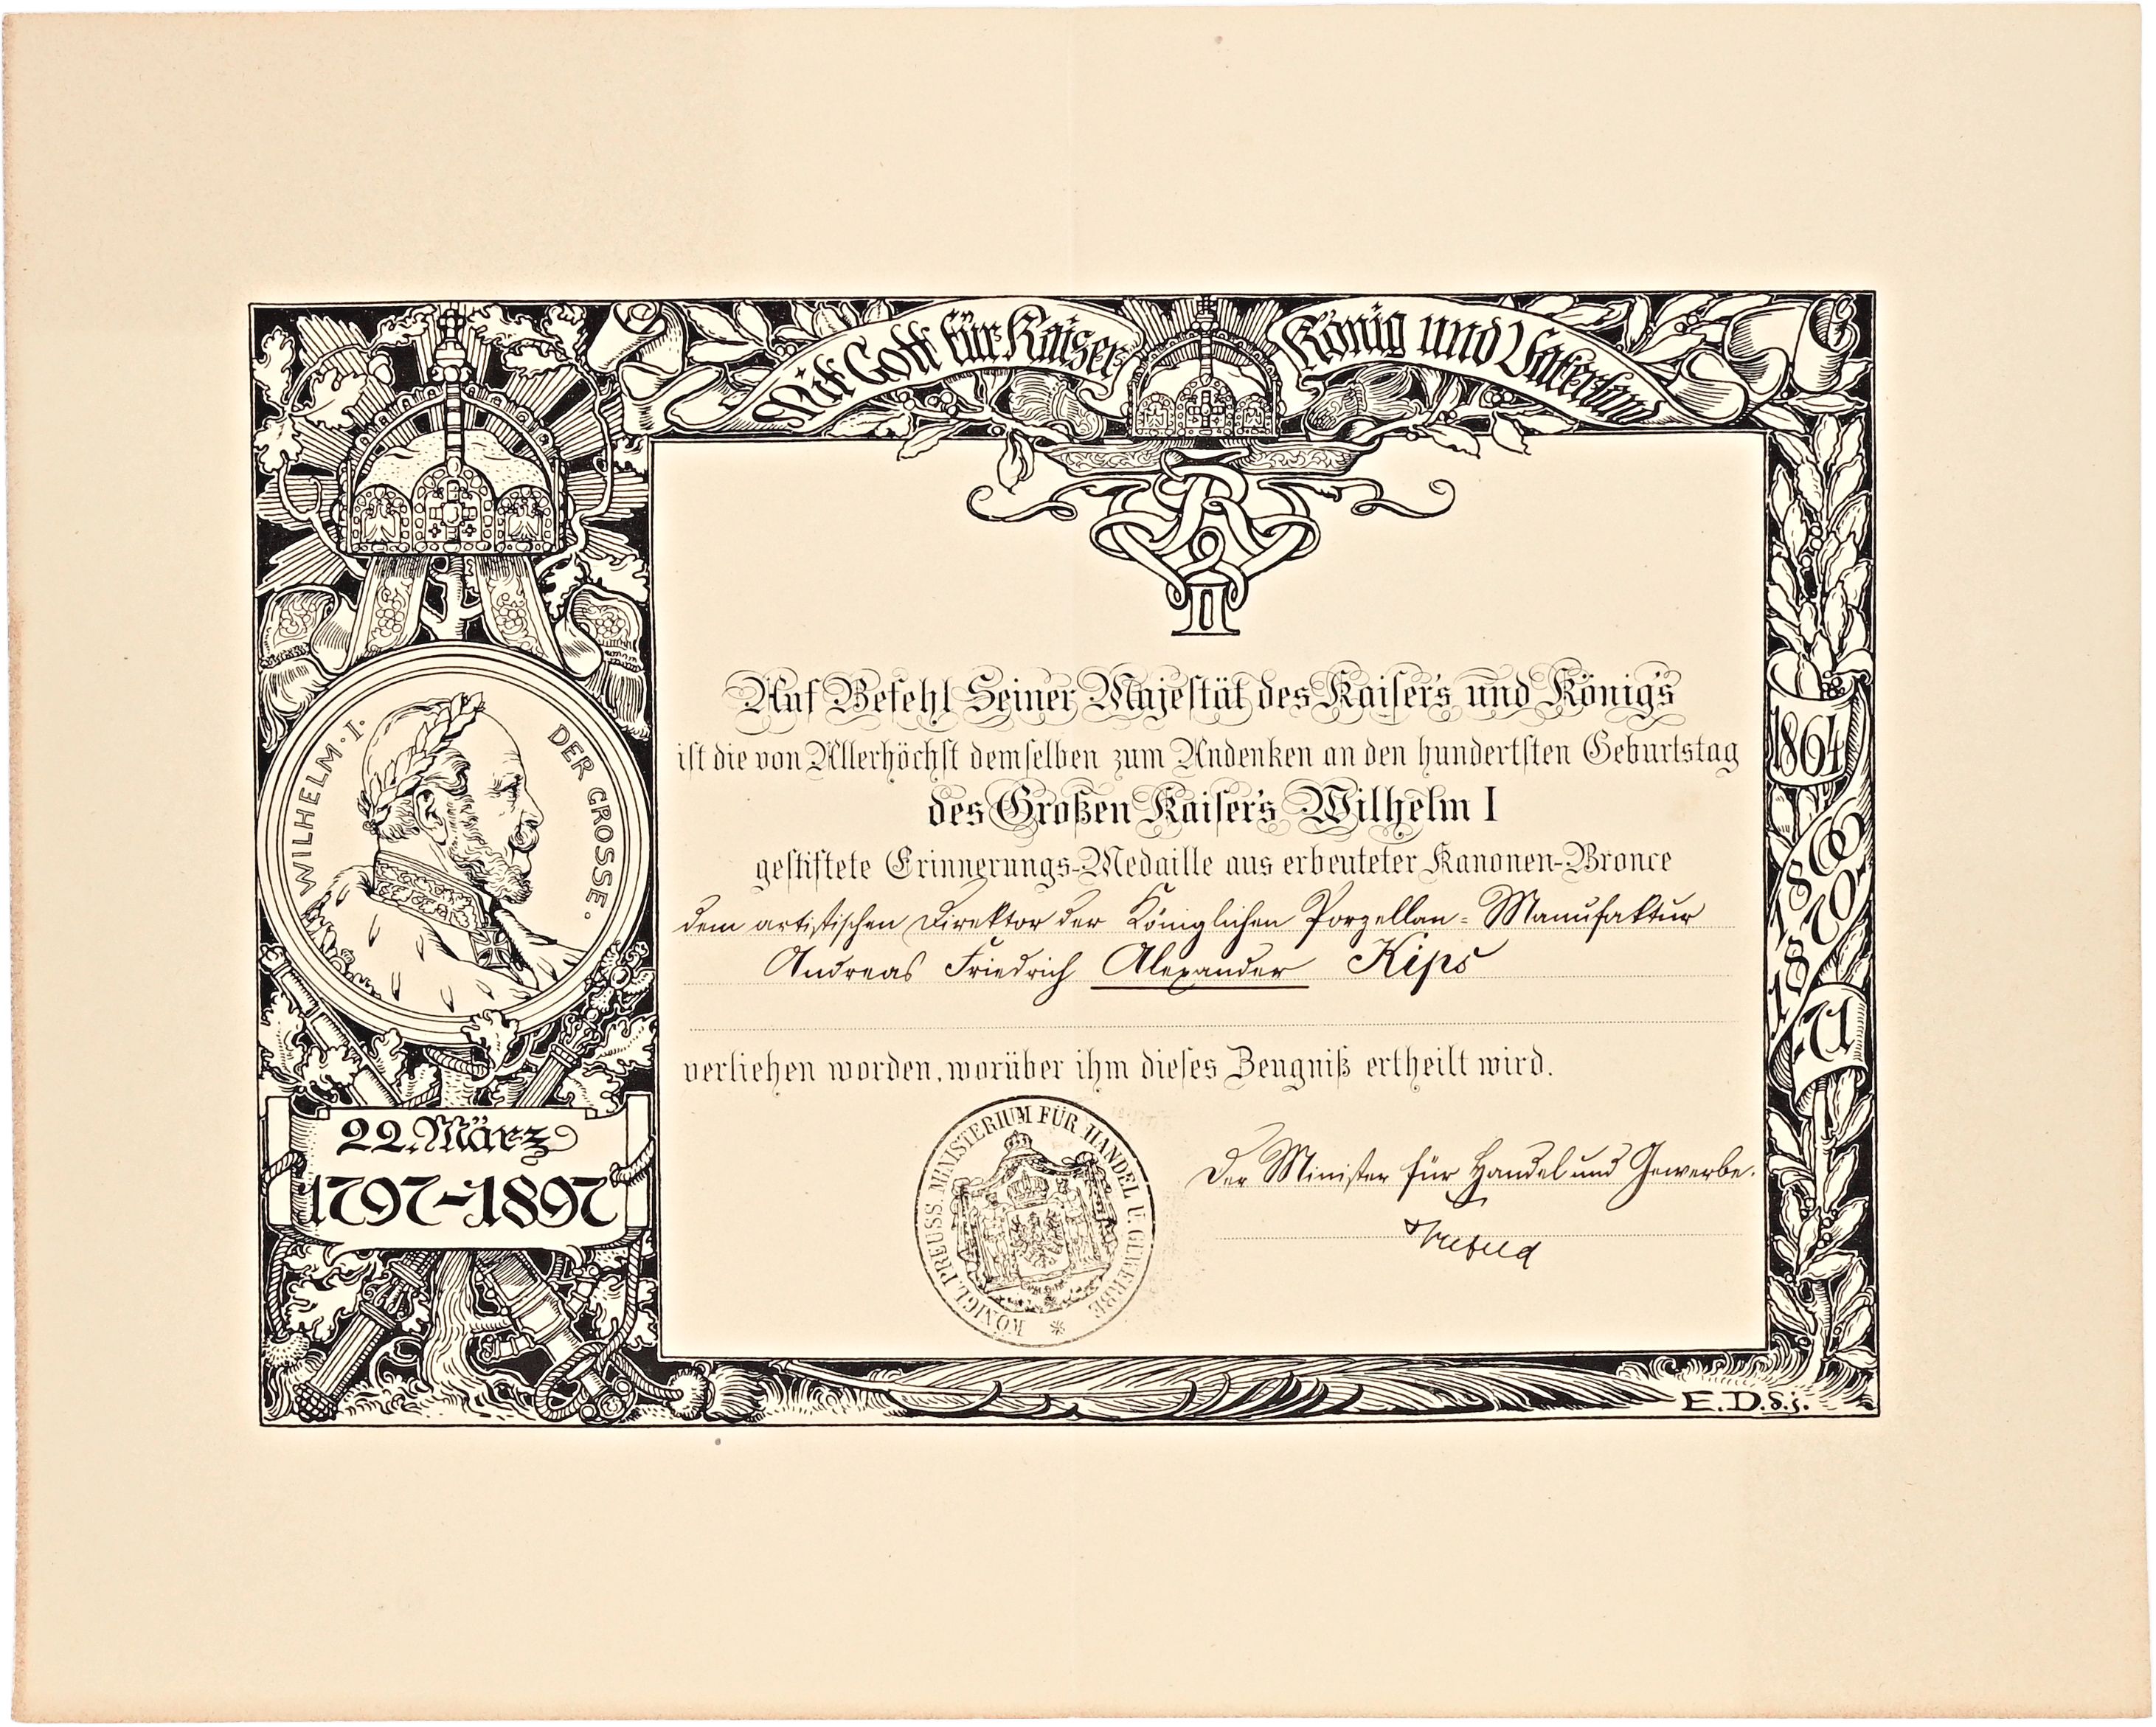 Mit Gott für Kaiser König und Vaterland
WILHELM · I · DER GROSSE ·
22. März
1797-1897
1864
1866
1870
1871
W II
Auf Befehl Seiner Majestät des Kaiser's und König's
ist die von Allerhöchst demselben zum Andenken an den hundertsten Geburtstag
des Großen Kaiser's Wilhelm I
gestiftete Erinnerungs-Medaille aus erbeuteter Kanonen-Bronce
dem artistischen Direktor der Königlichen Porzellan-Manufaktur
Andreas Friedrich Alexander Kips
verliehen worden, worüber ihm dieses Zeugniß ertheilt wird.
KÖNIGL. PREUSS. MINISTERIUM FÜR HANDEL U. GEWERBE
Der Minister für Handel und Gewerbe.
E. D. d. j.